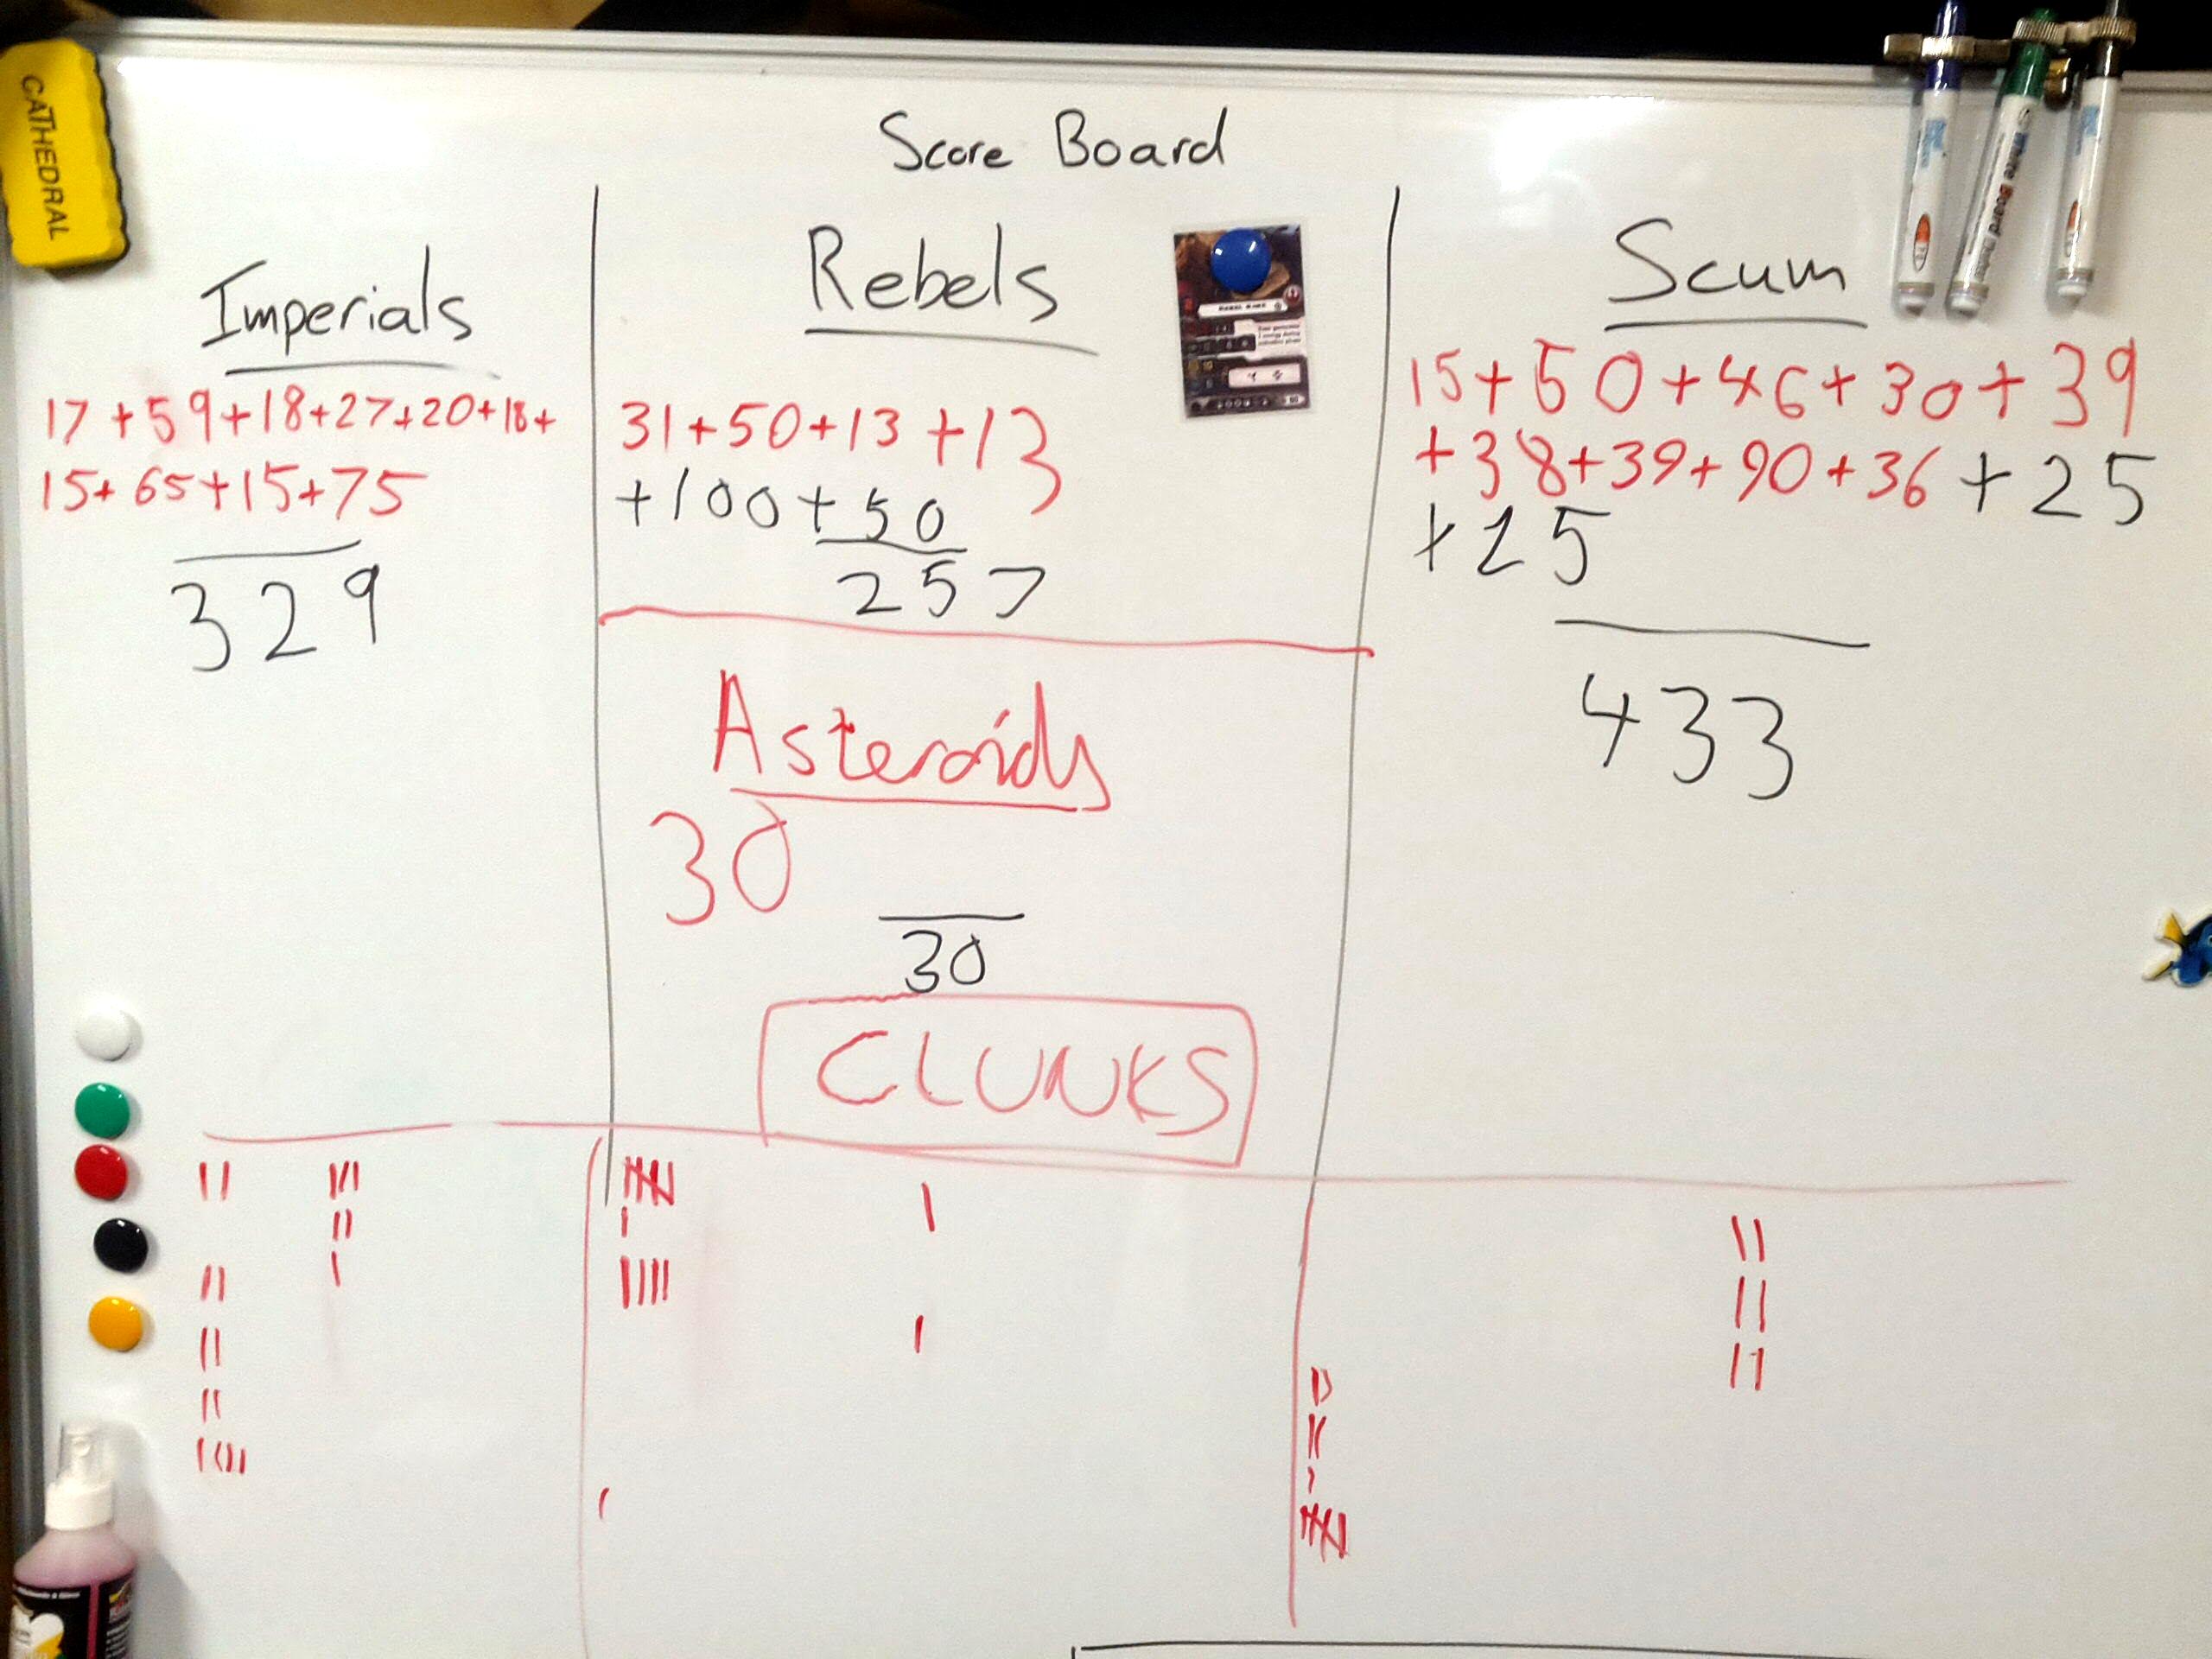 CATHEDRAL
Score Board
Imperials
17 + 59 + 18 + 27 + 20 + 18 +
15 + 65 + 15 + 75
329
Rebels
31 + 50 + 13 + 13
+ 100 + 50
257
Asteroids
30
30
CLUNKS
Scum
15 + 50 + 46 + 30 + 39
+ 38 + 39 + 90 + 36 + 25
+ 25
433
White Board